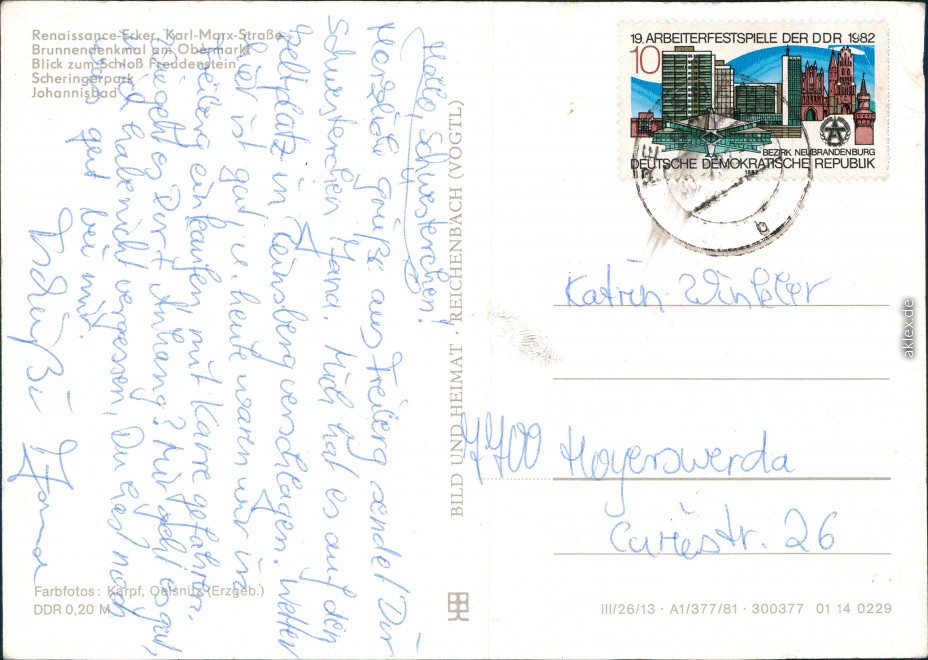 Renaissance-Erker, Karl-Marx-Straße
Brunnendenkmal am Obermarkt
Blick zum Schloß Freudenstein
Scheringerpark
Johannisbad
Hallo, Schwesterchen!
Herzliche Grüße aus Freiberg sendet Dir
Schwesterchen Jana. Mich hat es auf den
Zeltplatz in verschlagen. Wetter
hier ist gut u. heute waren wir in
Freiberg einkaufen mit Karre gefahren.
Wie geht es Dir + Anhang? Mir geht es gut,
habe nicht vergessen, Du hast noch
gut bei mir.
Tschüßi Jana
Farbfotos: Karpf, Oelsnitz (Erzgeb.)
DDR 0,20 M
BILD UND HEIMAT · REICHENBACH (VOGTL)
19. ARBEITERFESTSPIELE DER DDR 1982
10
BEZIRK NEUBRANDENBURG
DEUTSCHE DEMOKRATISCHE REPUBLIK
1982
b
Katrin Winkler
7700 Hoyerswerda
Curiestr. 26
III/26/13 · A1/377/81 · 300377 01 14 0229
aklex.de